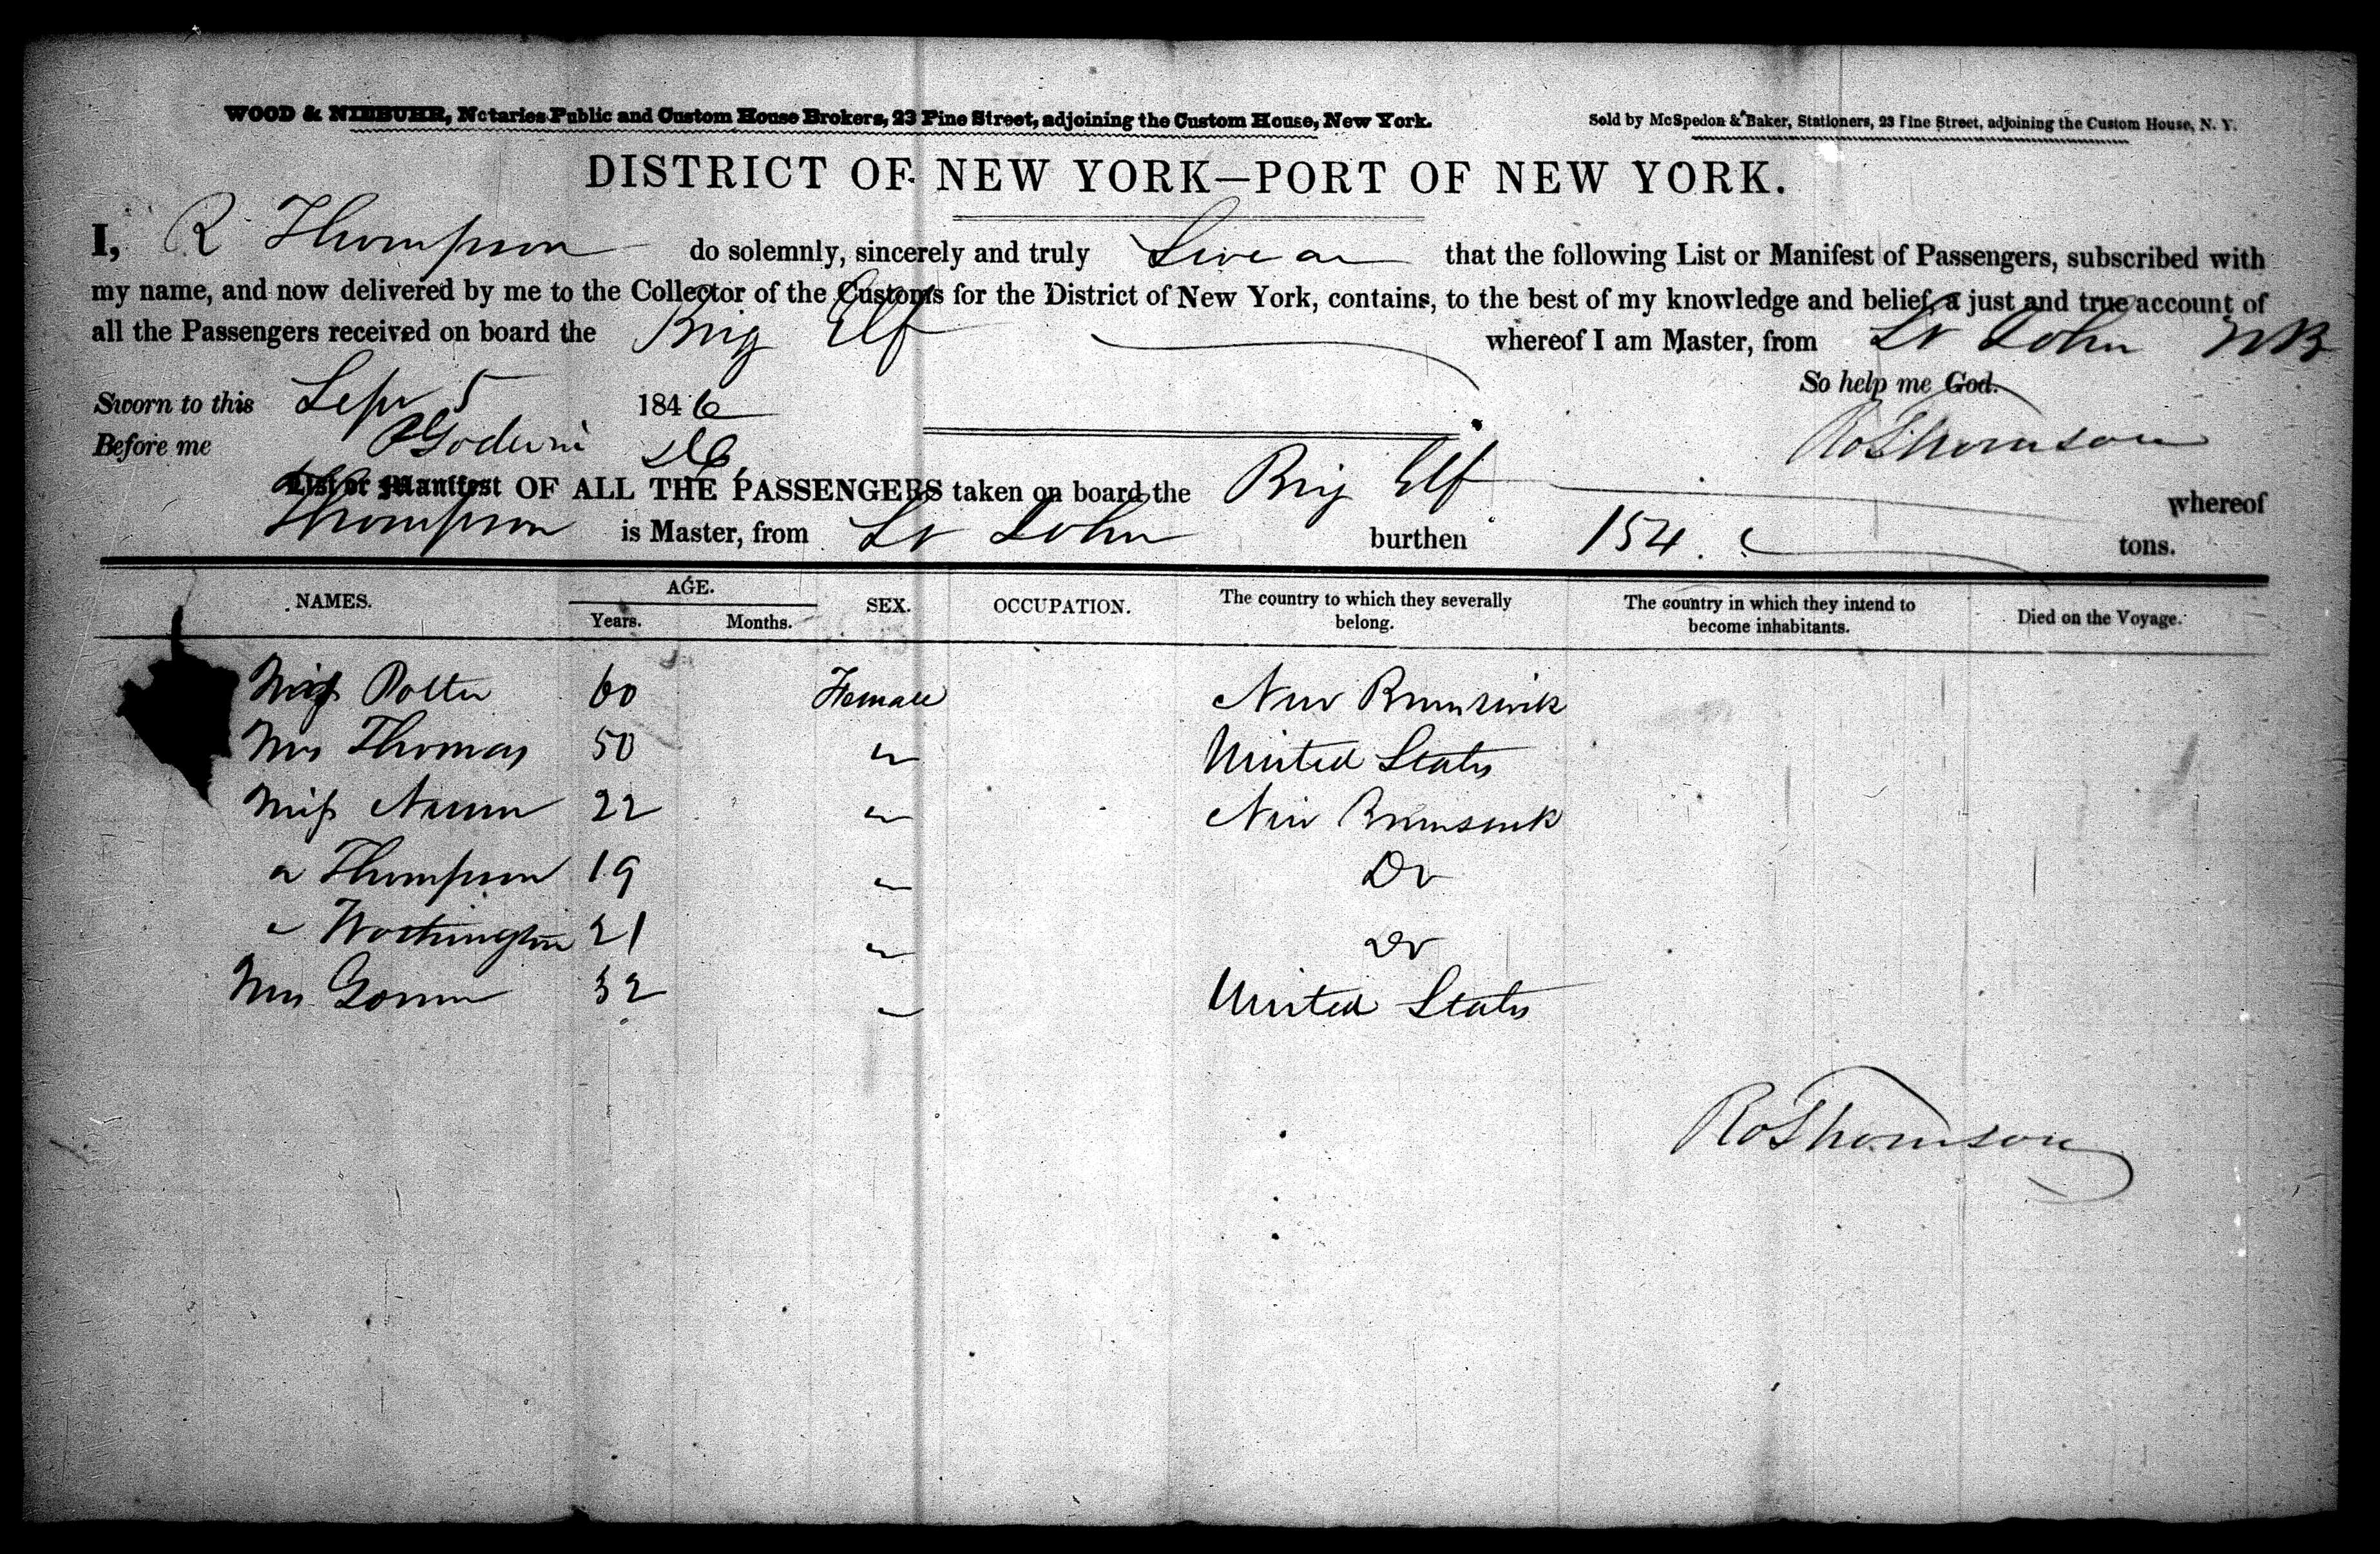 WOOD & NIEBUHR, Notaries Public and Custom House Brokers, 23 Pine Street, adjoining the Custom House, New York.
Sold by McSpedon & Baker, Stationers, 23 Pine Street, adjoining the Custom House, N. Y.
DISTRICT OF NEW YORK—PORT OF NEW YORK.
I, R Thompson do solemnly, sincerely and truly Swear that the following List or Manifest of Passengers, subscribed with
my name, and now delivered by me to the Collector of the Customs for the District of New York, contains, to the best of my knowledge and belief, a just and true account of
all the Passengers received on board the Brig Elf whereof I am Master, from St John NB
So help me God.
Sworn to this Sep 5 1846
Before me
Ro Thomson
List or Manifest OF ALL THE PASSENGERS taken on board the Brig Elf whereof
Thompson is Master, from St John burthen 154 tons.
NAMES. AGE. SEX. OCCUPATION. The country to which they severally belong. The country in which they intend to become inhabitants. Died on the Voyage.
Years. Months.
Miss Potter 60 Female New Brunswick
Mrs Thomas 50 " United States
Miss 22 " New Brunswick
" Thompson 19 " Do
" Worthington 21 " Do
Mrs 32 " United States
Ro Thomson